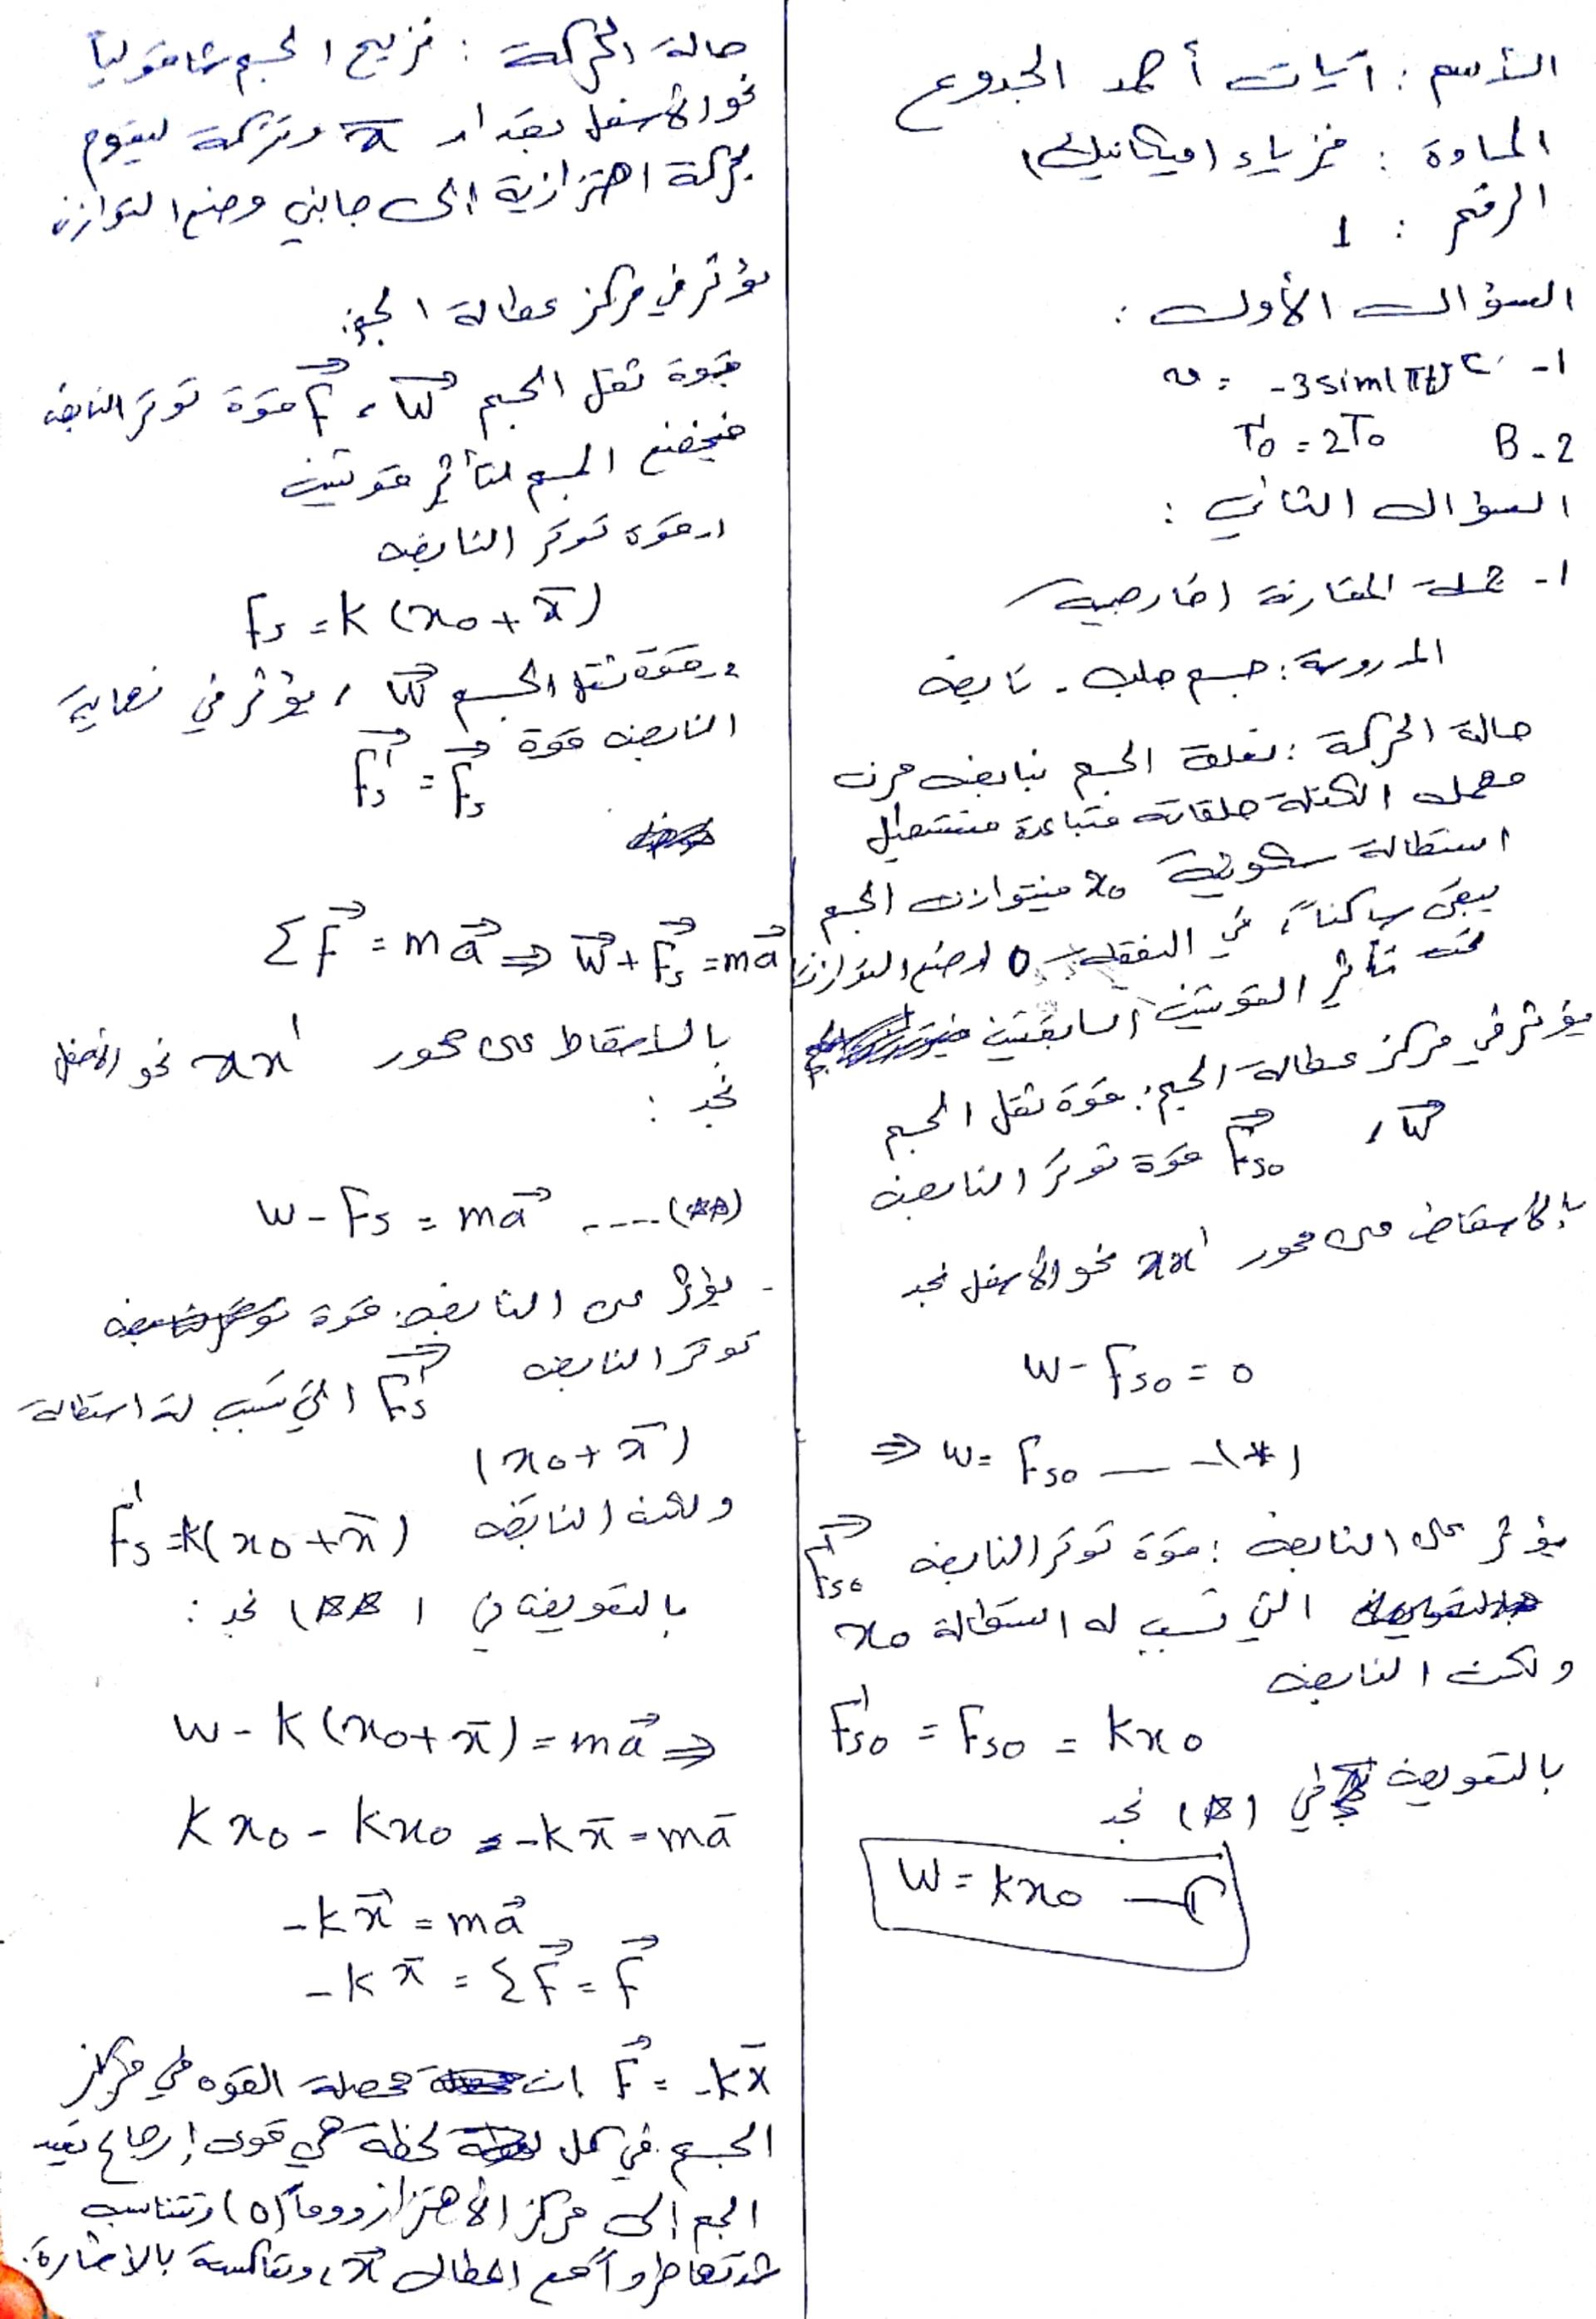 الاسم : آيات أحمد الجدوع
المادة : فيزياء (ميكانيك)
الرقم : 1
السؤال الأول :
1- C v = -3sin(πt)
2- B T'o = 2To
السؤال الثاني :
1- جملة المقارنة (خارجية)
المدروسة : جسم صلب - نابض
حالة الحركة : نعلق الجسم بنابض مرن
مهمل الكتلة حلقاته متباعدة فيستطيل
استطالة سكونية x0 فيتوازن الجسم
يبقى ساكناً، في النقطة 0 (وضع التوازن)
تحت تأثير القوتين السابقتين
يؤثر في مركز عطالة الجسم: قوة ثقل الجسم
W⃗ ، F⃗s0 قوة توتر النابض
بالاسقاط على محور xx' نحو الأسفل نجد
W - Fs0 = 0
⇒ W = Fs0 — -(*)
يؤثر على النابض : قوة توتر النابض F⃗'s0
التي تسبب له استطالة x0
ولكن النابض
F's0 = Fs0 = kx0
بالتعويض في (*) نجد
W = kx0
حالة الحركة : نزيح الجسم شاقولياً
نحو الأسفل بمقدار x̄ ونتركه ليقوم
بحركة اهتزازية إلى جانبي وضع التوازن
يؤثر في مركز عطالة الجسم:
قوة ثقل الجسم W⃗ ، F⃗ قوة توتر النابض
فيخضع الجسم لتأثير قوتين
1- قوة توتر النابض
Fs = k (x0 + x̄)
2- قوة ثقل الجسم W⃗ ، يؤثر في نهاية
النابض قوة F⃗'s = F⃗s
ΣF⃗ = ma⃗ ⇒ W⃗ + F⃗s = ma⃗
بالاسقاط على محور xx' نحو الأسفل
نجد :
W - Fs = ma⃗ ---- (**)
- يؤثر على النابض: قوة
توتر النابض F⃗'s التي تسبب له استطالة
(x0 + x̄)
ولكن النابض F's = k(x0 + x̄)
بالتعويض في (**) نجد :
W - k (x0 + x̄) = ma⃗ ⇒
kx0 - kx0 = -kx̄ = mā
-kx̄ = ma⃗
-kx̄ = ΣF⃗ = F⃗
F⃗ = -kx̄ إن محصلة القوة في مركز
الجسم في كل لحظة هي قوى إرجاع تعيد
الجسم إلى مركز الاهتزاز دوماً (0) وتتناسب
شدتها طرداً مع المطال x̄، وتعاكسه بالاشارة.